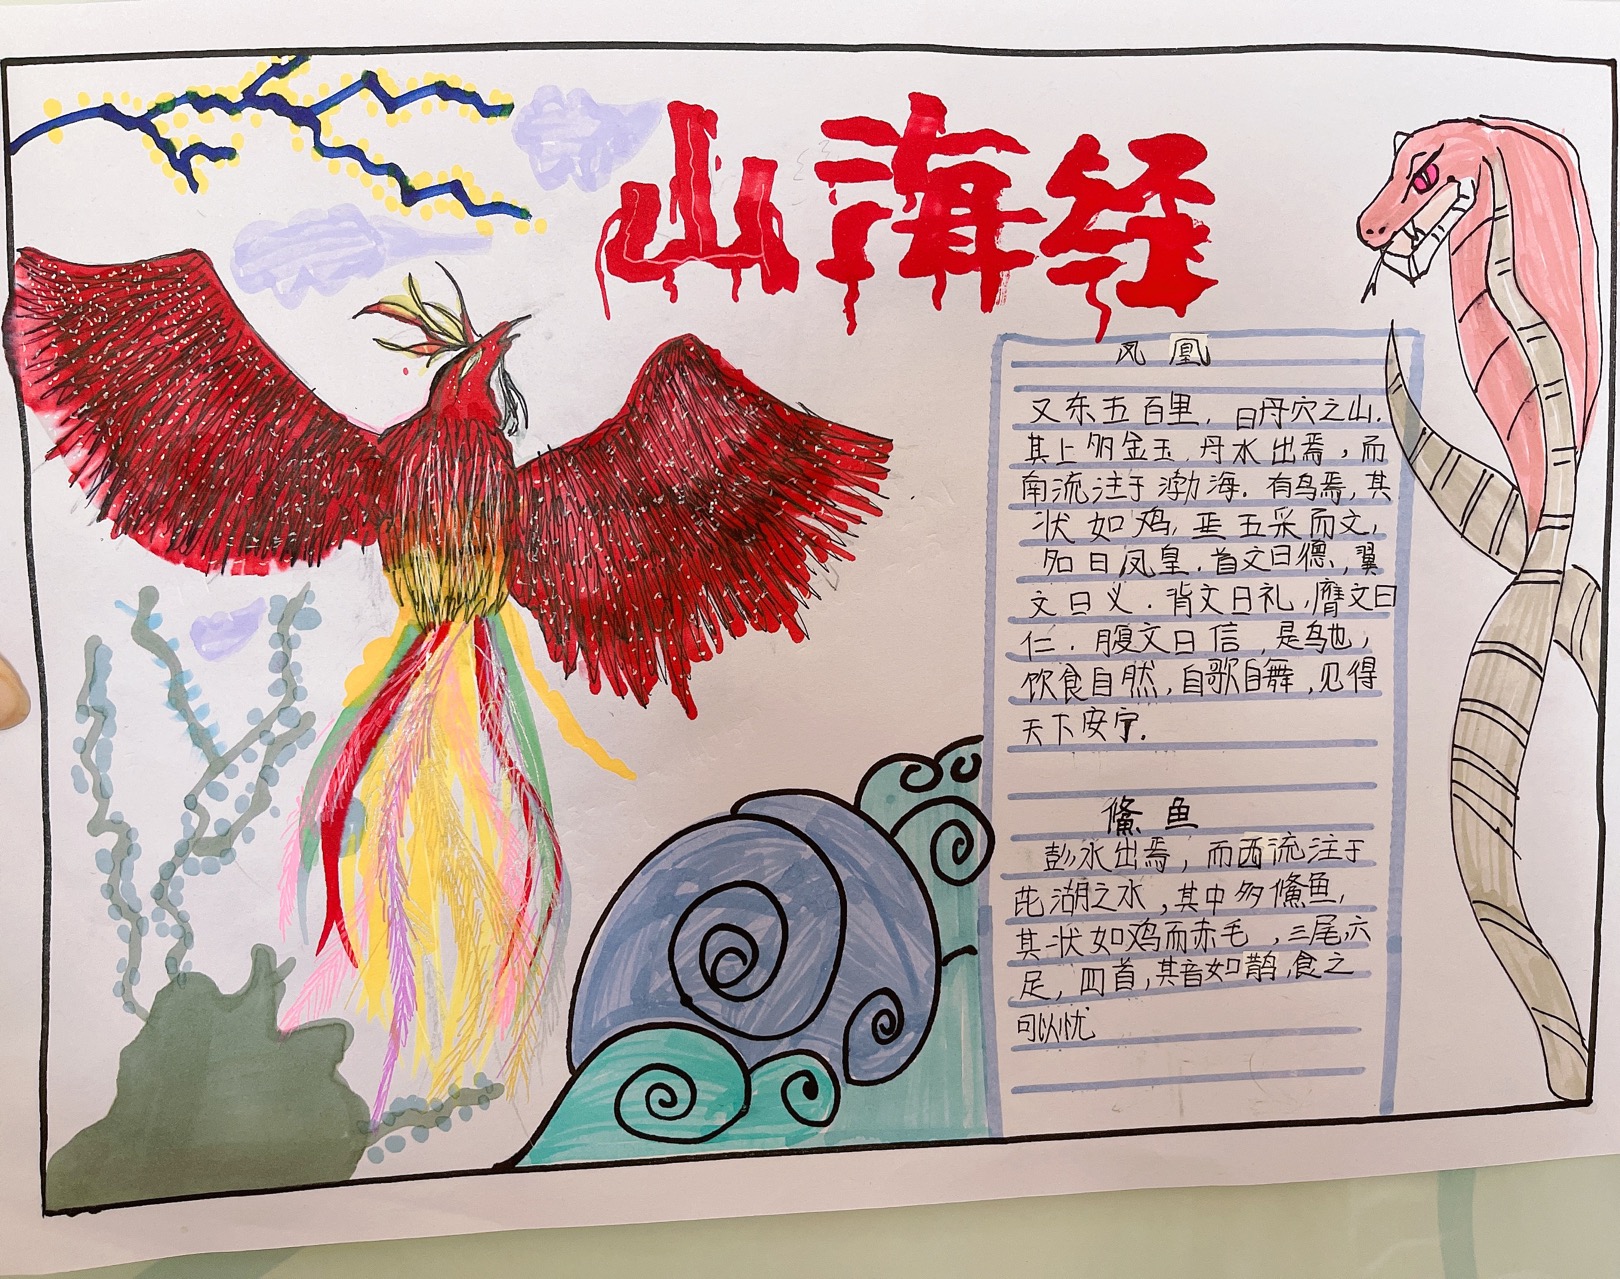 山海经
凤凰
又东五百里，曰丹穴之山．
其上多金玉．丹水出焉，而
南流注于渤海．有鸟焉，其
状如鸡，五采而文，
名曰凤皇．首文曰德，翼
文曰义．背文曰礼，膺文曰
仁．腹文曰信，是鸟也，
饮食自然，自歌自舞，见得
天下安宁．
鯈鱼
彭水出焉，而西流注于
芘湖之水，其中多鯈鱼，
其状如鸡而赤毛，三尾六
足，四首，其音如鹊，食之
可以忧